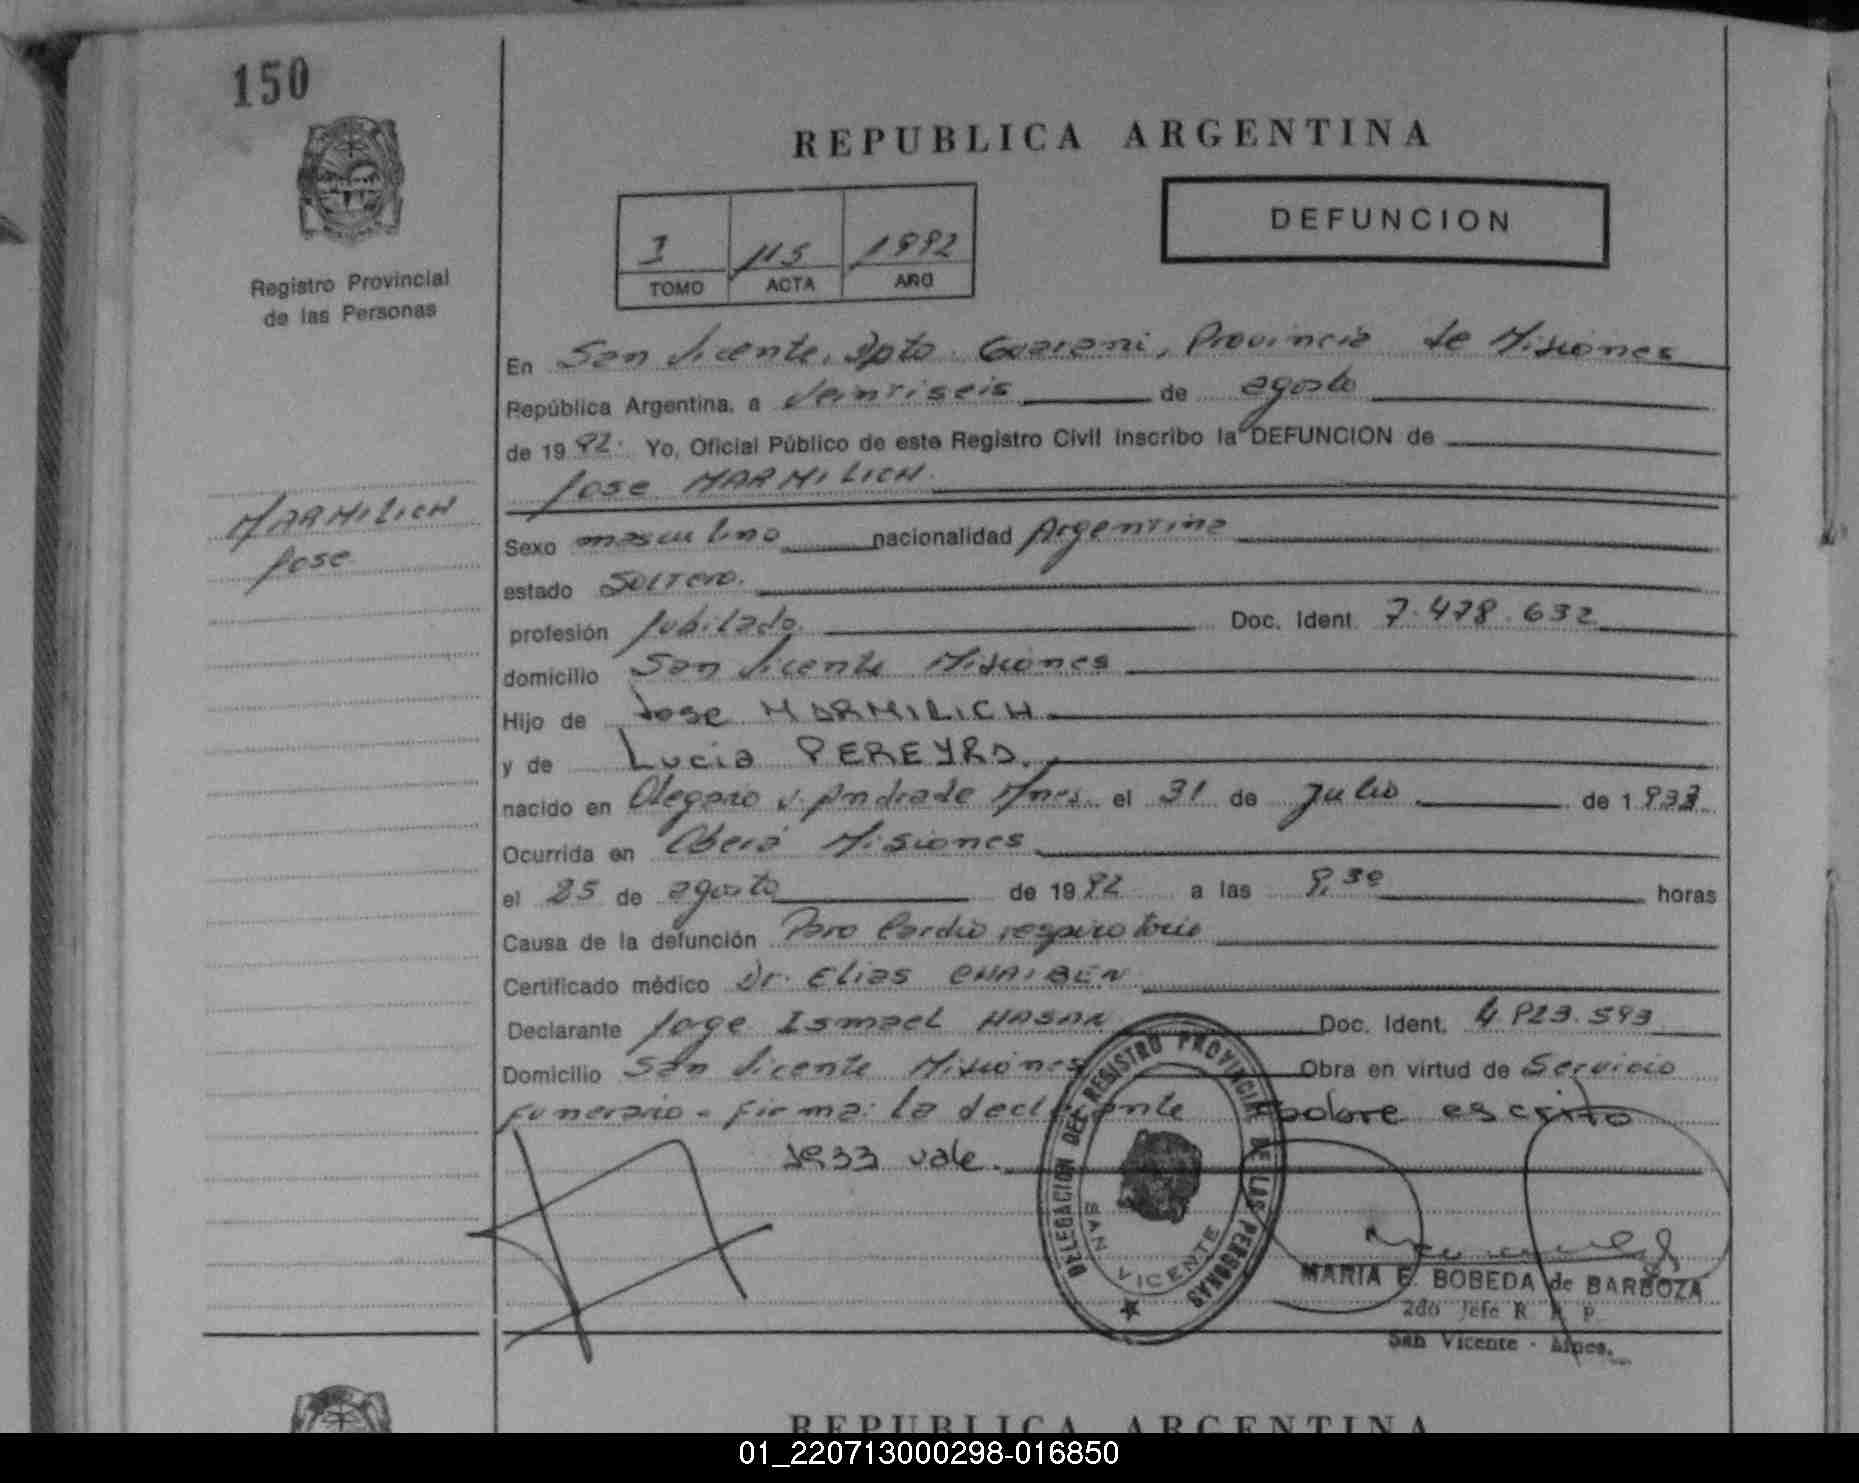 150
REPUBLICA ARGENTINA
DEFUNCION
I 115 1992
TOMO ACTA AÑO
Registro Provincial
de las Personas
En San Vicente, Dpto. Guarani, Provincia de Misiones
República Argentina, a Veintiseis de agosto
de 1992. Yo, Oficial Público de este Registro Civil inscribo la DEFUNCION de
Jose MARMILICH.
MARMILICH
Jose
Sexo masculino nacionalidad Argentina
estado Soltero.
profesión Jubilado. Doc. Ident. 7.478.632
domicilio San Vicente Misiones
Hijo de Jose MARMILICH
y de Lucia PEREYRA.
nacido en Olegario V. Andrade Mnes. el 31 de Julio de 1933
Ocurrida en Oberá Misiones
el 25 de agosto de 1992 a las 9,30 horas
Causa de la defunción Paro Cardio respiratorio
Certificado médico Dr. Elias CHAIBEN
Declarante Jorge Ismael HASAN Doc. Ident. 4.823.593
Domicilio San Vicente Misiones Obra en virtud de Servicio
funerario - Firma: la declarante Sobre escrito
1933 vale.
DELEGACION DEL REGISTRO PROVINCIAL DE LAS PERSONAS
SAN VICENTE
MARIA E. BOBEDA de BARBOZA
2do Jefe R. P. P.
San Vicente - Mnes.
REPUBLICA ARGENTINA
01_220713000298-016850